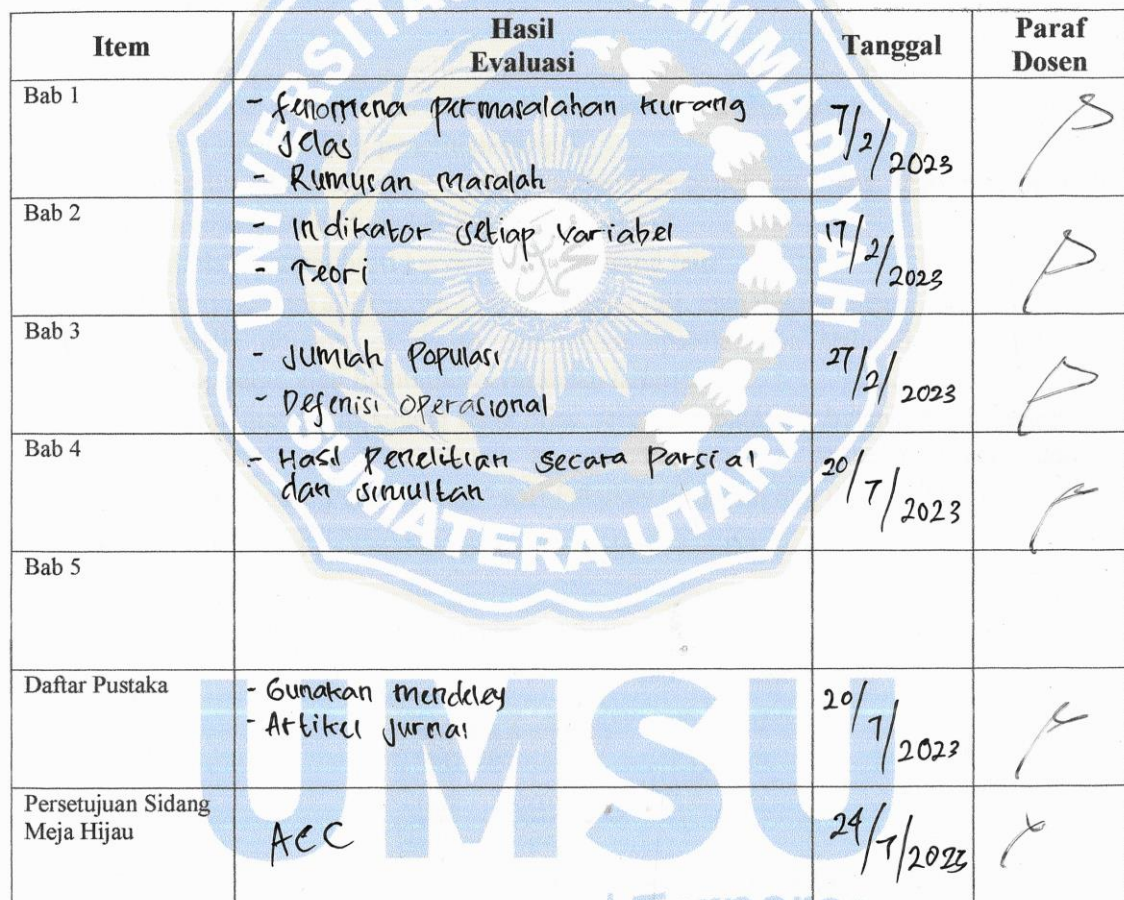 Item Hasil Evaluasi Tanggal Paraf Dosen
Bab 1
- fenomena permasalahan kurang
jelas
- Rumusan masalah
7/2/2023
Bab 2
- Indikator setiap variabel
- Teori
17/2/2023
Bab 3
- Jumlah Populasi
- Defenisi operasional
27/2/2023
Bab 4
- Hasil Penelitian secara parsial
dan simultan
20/7/2023
Bab 5
Daftar Pustaka
- Gunakan mendeley
- Artikel jurnal
20/7/2023
Persetujuan Sidang
Meja Hijau
ACC
24/7/2023
UNIVERSITAS MUHAMMADIYAH
SUMATERA UTARA
UMSU